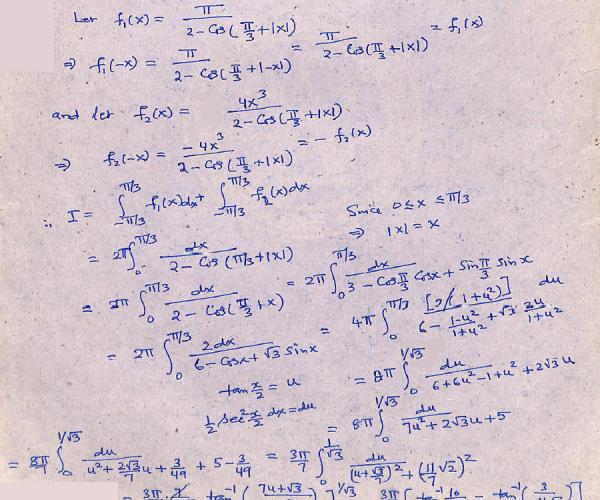 Let f₁(x) = π / (2 - Cos(π/3 + |x|))
⇒ f₁(-x) = π / (2 - Cos(π/3 + |-x|)) = π / (2 - Cos(π/3 + |x|)) = f₁(x)
and let f₂(x) = 4x³ / (2 - Cos(π/3 + |x|))
⇒ f₂(-x) = -4x³ / (2 - Cos(π/3 + |x|)) = - f₂(x)
∴ I = ∫_{-π/3}^{π/3} f₁(x)dx + ∫_{-π/3}^{π/3} f₂(x)dx
Since 0 ≤ x ≤ π/3
⇒ |x| = x
= 2π ∫_0^{π/3} dx / (2 - Cos(π/3 + |x|))
= 2π ∫_0^{π/3} dx / (2 - Cos(π/3 + x)) = 2π ∫_0^{π/3} dx / (3 - Cos π/3 Cosx + Sin π/3 Sinx)
= 2π ∫_0^{π/3} 2dx / (6 - Cosx + √3 Sinx) = 4π ∫_0^{π/3} [2/(1+u²)] du / (6 - (1-u²)/(1+u²) + √3 2u/(1+u²))
tan x/2 = u
½ sec² x/2 dx = du
= 8π ∫_0^{1/√3} du / (6 + 6u² - 1 + u² + 2√3 u)
= 8π ∫_0^{1/√3} du / (7u² + 2√3 u + 5)
= 8π/7 ∫_0^{1/√3} du / (u² + 2√3/7 u + 3/49 + 5 - 3/49) = 3π/7 ∫_0^{1/√3} du / ((u + √3/7)² + (11/7 √2)²)